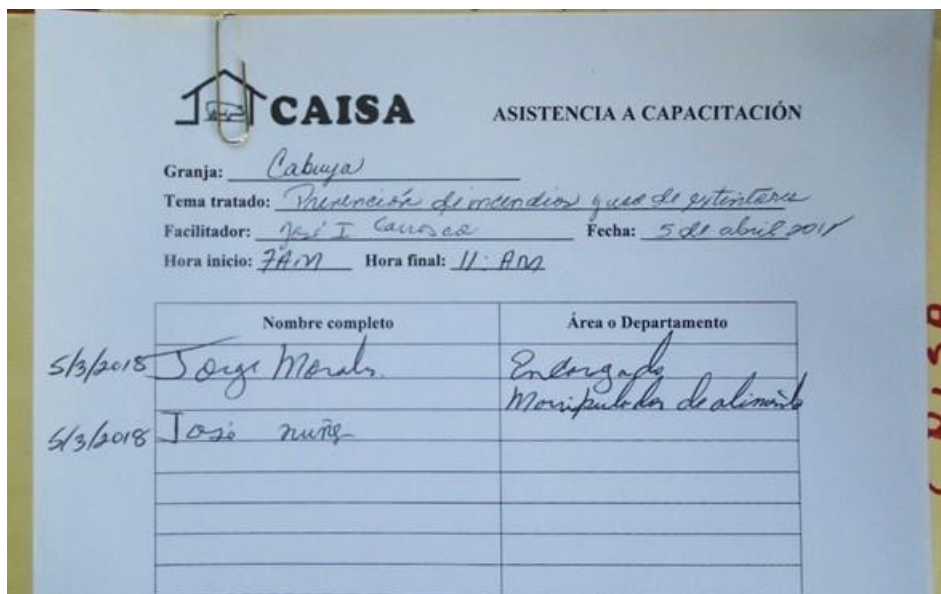 CAISA
ASISTENCIA A CAPACITACIÓN
Granja: Cabuya
Tema tratado: Prevención de incendios y uso de extintores
Facilitador: José I Carrasco Fecha: 5 de abril
Hora inicio: 7AM Hora final: 11: AM
Nombre completo Área o Departamento
5/3/2018 Jorge Morales Encargado
Manipulador de alimento
5/3/2018 José nuñe